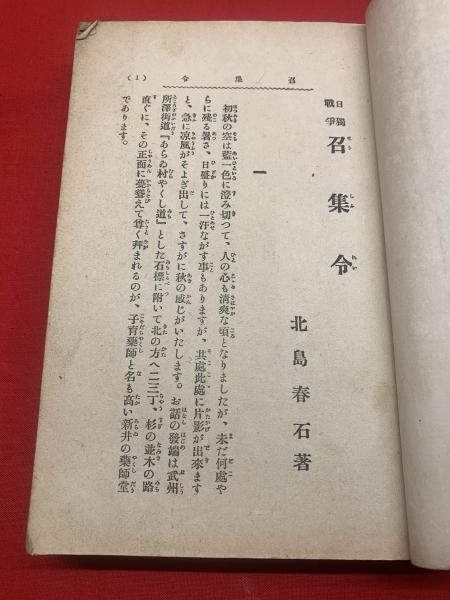 (1) 令集召
日獨戰爭 召集令
北島春石著
一
初秋の空は藍一色に澄み切つて、人の心も清爽な頃となりましたが、未だ何處や
らに殘る暑さ、日盛りには一汗ながす事もありますが、其處此處に片影が出來ます
と、急に凉風がそよぎ出して、さすがに秋の感じがいたします。お話の發端は武州
所澤街道『あらゐ村やくし道』とした石標に附いて北の方へ二三丁、杉の並木の路
直ぐに、その正面に甍聳えて尊く拜まれるのが、子育藥師と名も高い新井の藥師堂
であります。